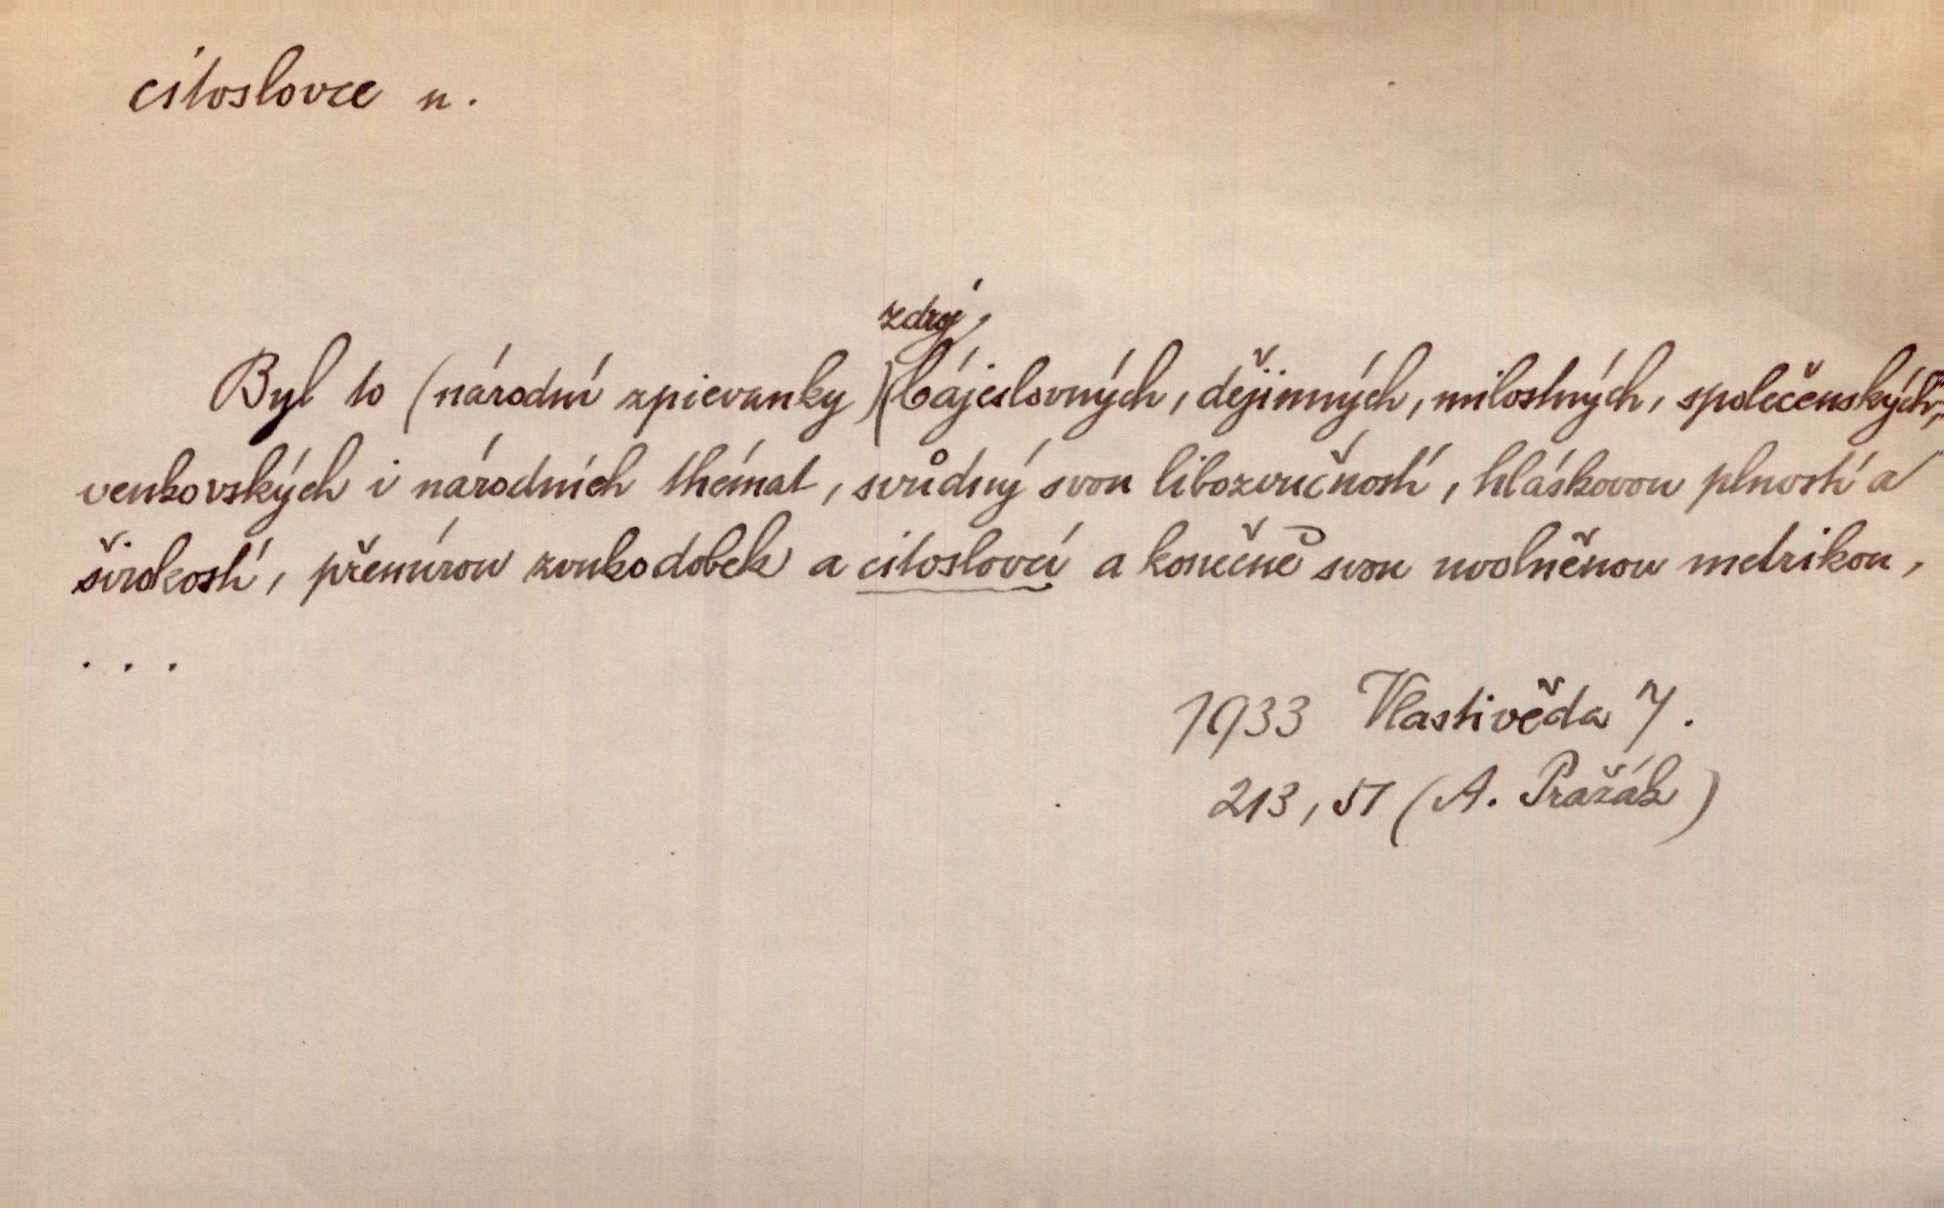 citoslovce n.
zdroj
Byl to (národní zpievanky) bájeslovných, dějinných, milostných, společenských,
venkovských i národních thémat, svůdný svou libozvučností, hláskovou plností a
širokostí, přemírou zvukodobek a citoslovcí a konečně svou uvolněnou metrikou,
. . .
1933 Vlastivěda 7.
213, 57 (A. Pražák)